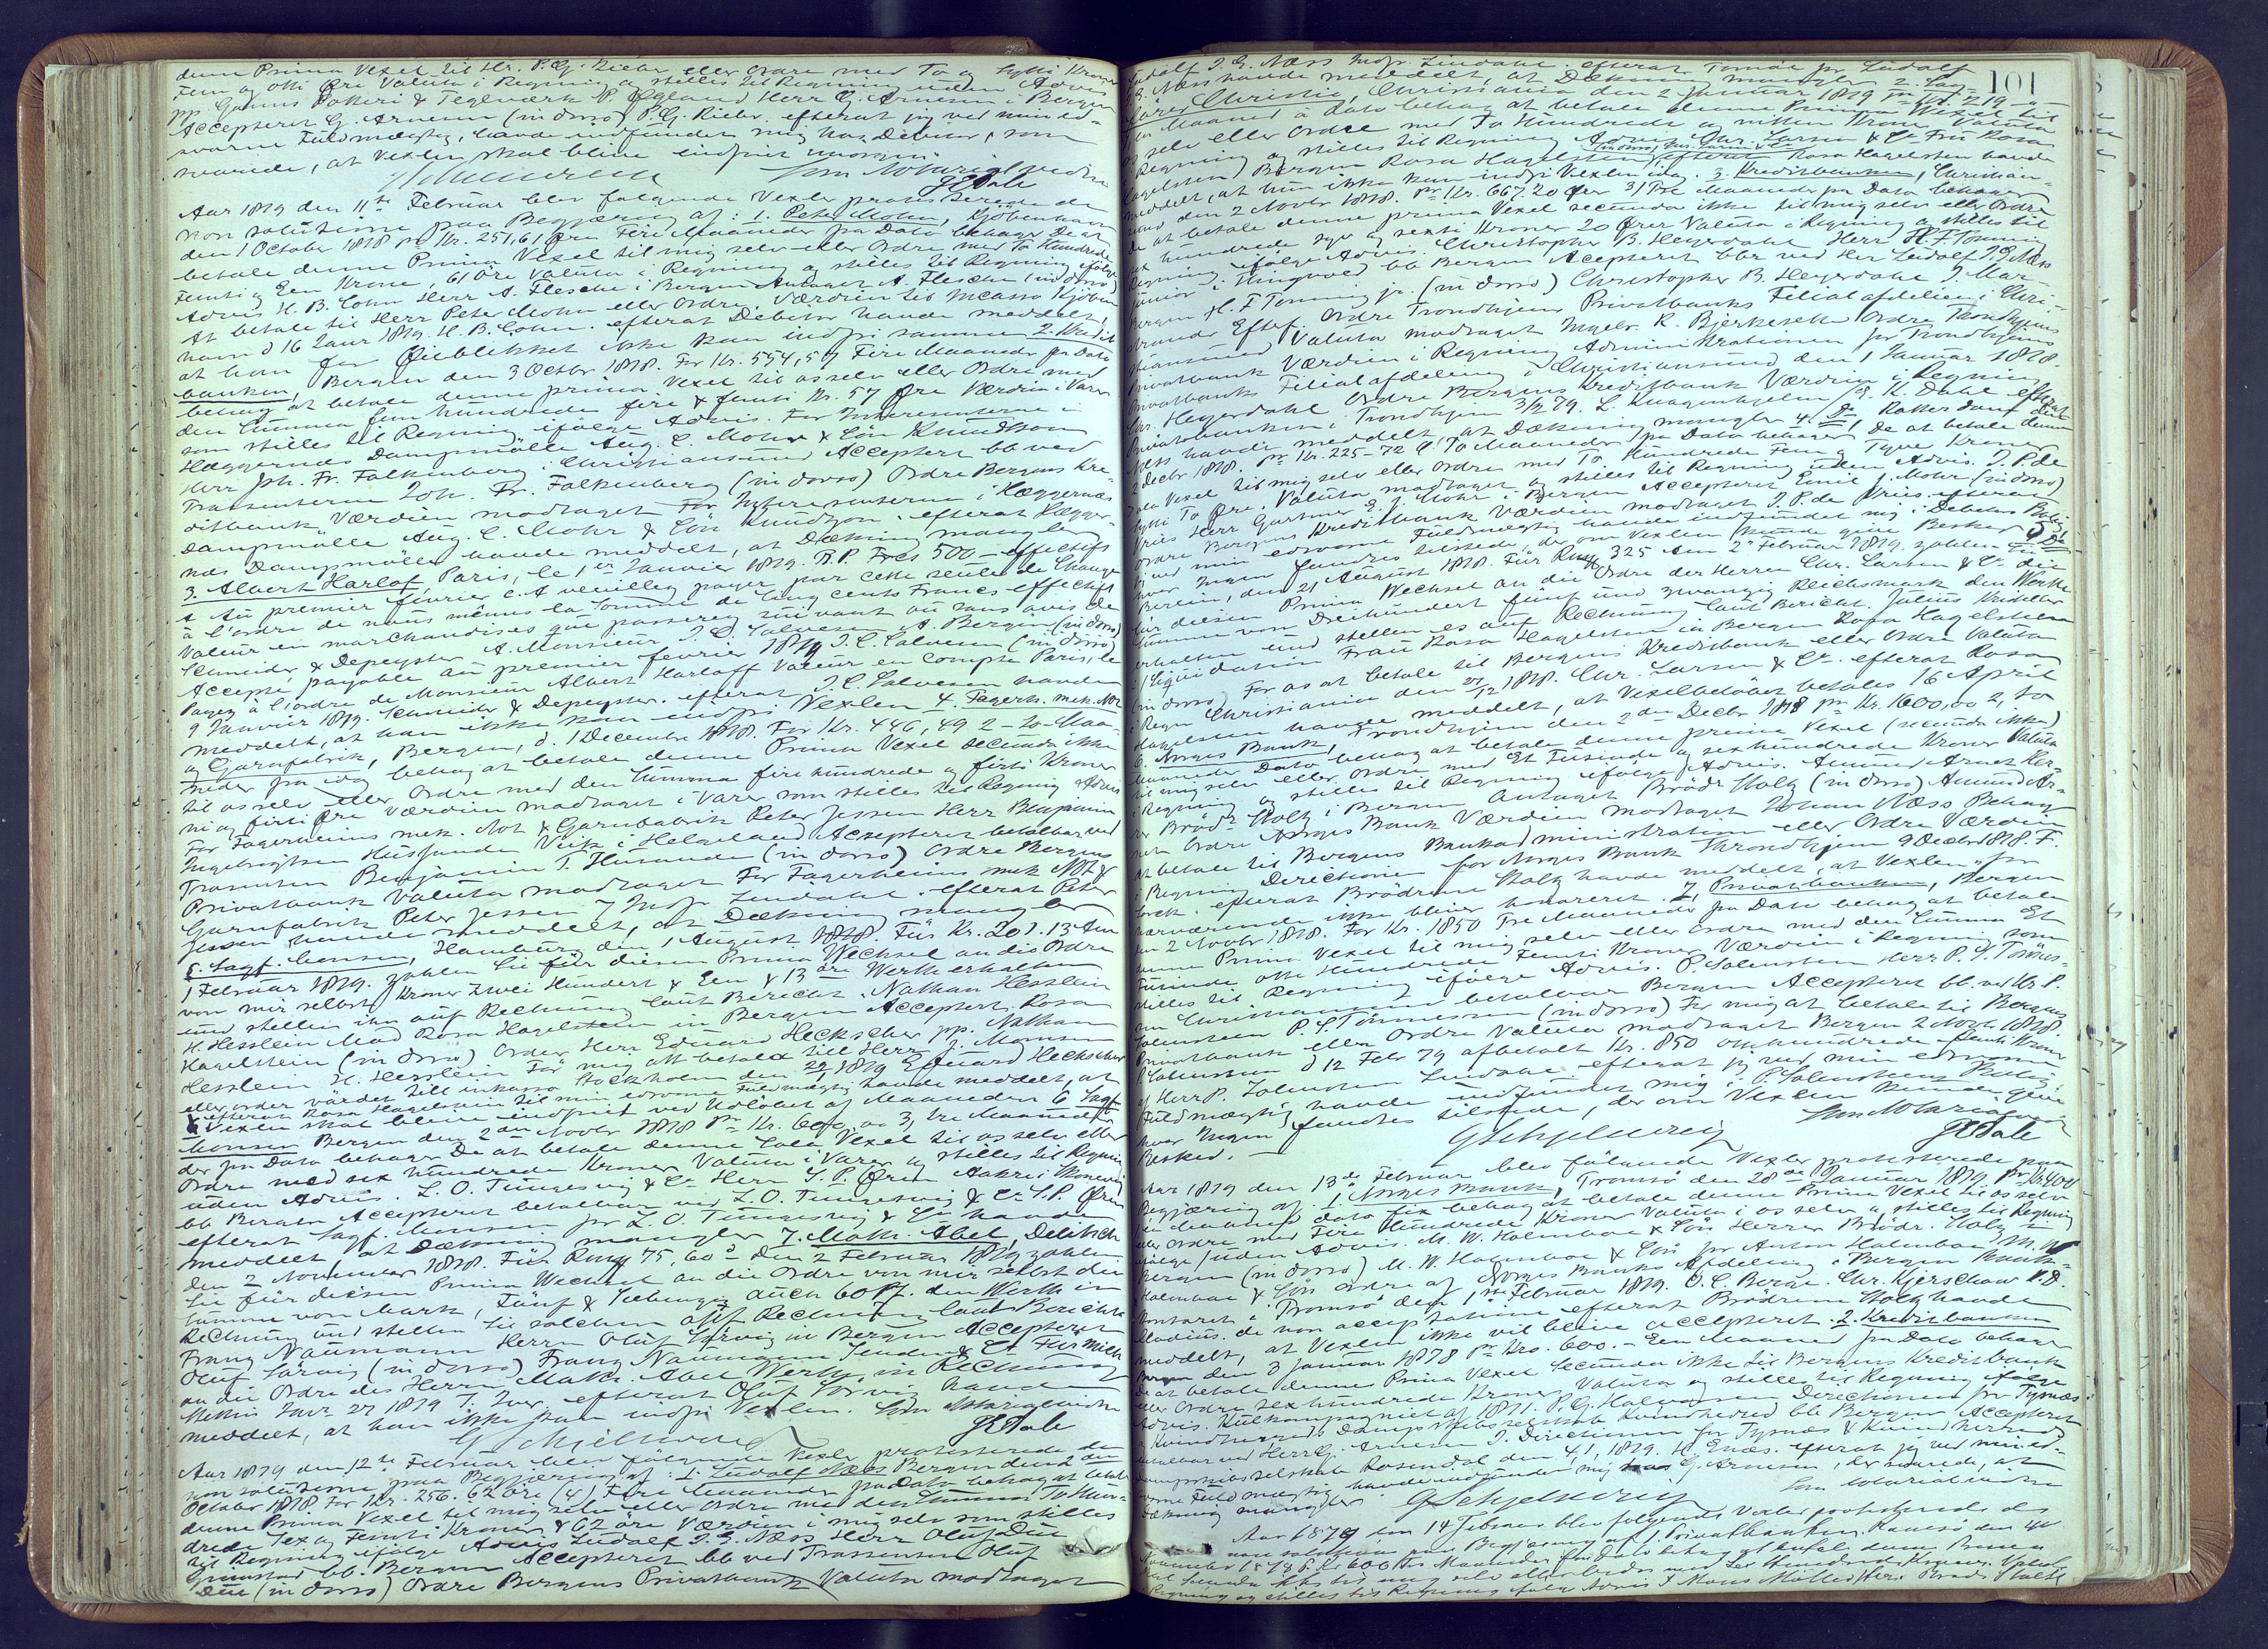 denne Prima Vexel til Hr. P. G. Rieber eller Ordre med To og Sytti Kroner
Fem og otti Øre Valuta i Regning og stilles til Regning uden Advis
pp Granus Potteri & Teglværk P. Øgland Herr G. Arnesen i Bergen
Accepteret G. Arnesen (in dorso) P. G. Rieber. efterat jeg ved min ed-
svorne Fuldmægtig, havde indfundet mig hos Debitor, som
svarede, at Vexlen skal blive indfriet imorgen.
Som Notarialvidne
GDale
Aar 1879 den 11te Februar blev følgende Vexler protesterede de
non solutione paa Begjæring af: 1. Peter Mohn, Kjöbenhavn
den 1 October 1878 pr Kr. 251,61 Øre Fire Maaneder fra Dato behager De at
betale denne Prima Vexel til mig selv eller Ordre med To Hundrede
Femti og Een Krone, 61 Öre Valuta i Regning og stilles til Regning ifölge
Advis H. B. Cohn Herr A. Flesche i Bergen Antaget A. Flesche (in dorso)
At betale til Herr Peter Mohn eller Ordre, Værdien til Incasso Kjöben-
havn d 16 Janr 1879. H. B. Cohn. efterat Debitor havde meddelt,
at han for Øieblikket ikke kan indfri samme 2. Kredit
banken, Bergen den 3 Octbr 1878. For Kr. 554,57 Fire Maaneder fra Dato
behag at betale denne prima Vexel til os selv eller Ordre med
den Summa fem hundrede fire & femti Kr. 57 Øre Værdien i Varer
som stilles til Regning ifølge Advis. For Interessenterne i
Hæggernæs Dampmölle Aug. C. Mohr & Sön Knudtzon
Herr Joh. Fr. Falkenberg. Christiansund Accepteret bb ved
Trassenterne Joh. Fr. Falkenberg (in dorso) Ordre Bergens Kre-
ditbank Værdien modtaget For Interessenterne i Hæggernæs
Dampmölle Aug. C. Mohr & Sön Knudtzon. efterat Hægger-
næs Dampmölle havde meddelt, at Dækning mangler
3. Albert Harlof, Paris, le 1er Janvier 1879. B.P. Frcs 500 – effectifs
A Au premier fevrier c. A veuillez payer par cette seule de Change
à l'ordre de nous mêmes la Somme de Cinq cents Francs effectifs
Valeur en marchandises que passerez suivant ou sans avis de
Schneider & Depeyster A. Monsieur J. C. Salvesen A. Bergen (in dorso)
Accepté, payable au premier fevrier 1879 J. C. Salvesen (in dorso)
Payez à l'ordre de Monsieur Albert Harloff Valeur en compte Paris, le
9 Janvier 1879. Schneider & Depeyster. efterat J. C. Salvesen havde
meddelt, at han ikke kan indfri Vexlen 4. Fagerh. mek. Not
og Garnfabrik, Bergen, d. 1 December 1878. For Kr. 446,49 2 – to Maa-
neder fra idag behag at betale denne Prima Vexel secunda ikke
til os selv eller Ordre med den Summa fire hundrede og firti Kroner
ni og firti Øre Værdien modtaget i Varer som stilles til Regning Advis
For Fagerheims mek. Not & Garnfabrik Peter Jessen Herr Benjamin
Ingebrigtsen Husfjanden Viik i Helgeland Accepteret betalbar ved
Trasenten Benjamin I. Husanden (in dorso) Ordre Bergens
Privatbank Valuta modtaget For Fagerheims mek. Not &
Garnfabrik Peter Jessen J Indr. Lindahl. efterat Peter
Jessen havde meddelt, at Dækning mangler
5. Sagf. Monsen, Hamburg den 1 August 1878 Für Kr. 201.13 Am
1 Februar 1879. zahlen Sie für diesen Prima Wechsel an die Ordre
von mir selbst Kroner Zwei Hundert & Een & 13 öre Werth erhalten
und stellen ihn auf Rechnung laut Bericht. Nathan Hesslein
H. Hesslein Mad Rosa Hagelstein in Bergen Acceptert Rosa
Hagelstein (in dorso) Order Herr Eduard Heckscher pp. Nathan
Hesslein H. Hesslein För mig att betala till Herr J. Monsen
eller order värdet till inkasso Stockholm den 22/1 1879 Eduard Heckscher
efterat Rosa Hagelstein til min edsvorne Fuldmægtig havde meddelt, at
Vexlen skal blive indfriet ved Udlöbet af Maaneden 6 Sagf
Monsen Bergen den 2den Novbr 1878 Pr Kr. 600,00 3, tre Maane-
der fra Dato behager De at betale denne Sola Vexel til os selv eller
Ordre med sex hundrede Kroner Valuta i Varer og stilles til Regning
uden Advis. L. O. Tungesvig & Co Herr S. P. Øren Aakre i Mosevig
bb Bergen Accepteret betalbar ved L. O. Tungesvig & Co S. P. Øren
efterat Sagf. Monsen for L. O. Tungesvig & Co havde
meddelt, at Dækning mangler 7. Math. Abel, Delitsch
den 2 November 1878. Für Rm 75,60 Den 2 Februar 1879 zahlen
Sie für diesen Prima Wechsel an die Ordre von mir selbst die
Summe von Mark, Fünf & Siebenzig auch 60 Pf. den Werth in
Rechnung und stellen Sie solchen auf Rechnung laut Bericht
Franz Naumann Herrn Oluf Sörvig in Bergen Accepteret
Oluf Sörvig (in dorso) Franz Naumann Sendung Für mich
an die Ordre des Herrn Math. Abel Werth in Rechnung
efterat Oluf Sörvig havde
meddelt, at han ikke kan indfri Vexlen. Som Notarialvidne
GDale
Aar 1879 den 12te Februar blev følgende Vexler protesterede de
non solutione paa Begjæring af: 1. Ludolf Næss Bergen den 2den
October 1878 For Kr. 256.62 Öre (4) Fire Maaneder fra Dato behag at betale
denne Prima Vexel til mig selv eller Ordre med den Summa To Hun-
drede Sex og Femti Kroner & 62 öre Værdien i mig selv som stilles
til Regning ifölge Advis Ludolf J. G. Næss Herr Oluf Due
Grimstad bb. Bergen Accepteret bb ved Trassenten Oluf
Due (in dorso) Ordre Bergens Privatbank Valuta modtaget
101
Ludolf J. G. Næss Indfr. Lindahl. efterat Tornöe for Ludolf
J. G. Næss havde meddelt, at Dækning mangler 2. Sag-
förer Christie, Christiania den 2 Januar 1879 pr Kr. 219 –
En Maaned à Dato behag at betale denne Prima Vexel til
og selv eller Ordre med To Hundrede og nitten Kroner Valuta
i Regning og stilles til Regning Advis Chr. Larsen & Co Frü Rosa
Hagelsteen Bergen Rosa Hagelsteen efterat Rosa Hagelsten havde
meddelt, at hun ikke kan indfri Vexlen idag. 3. Kreditbanken, Christian-
sund den 2 Novbr 1878. pr Kr. 667.20 Ører 3/Tre Maaneder fra Dato behager
De at betale denne prima Vexel secunda ikke til mig selv eller Ordre
sex hundrede syv og sexti Kroner 20 Ører Valuta i Regning og stilles til
Regning ifølge Advis. Christopher B. Heyerdahl Herr H. F. Tönning
junior i Thingvold bb Bergen Accepteret bbr ved Herr Ludolf J. G. Næss
Bergen H. F Tønning jr. (in dorso) Christopher B Heyerdahl J Mar-
strands Eftf. Ordre Trondhjems Privatbanks Filialafdeling i Chri-
stiansund Valuta modtaget Ingebr. K. Bjerkeseth Ordre Trondhjems
Privatbank Værdien i Regning Administrationen for Trondhjems
Privatbanks Filialafdeling i Christiansund den 1 Januar 1878.
Chr. Heyerdahl Ordre Bergens Kreditbank Værdien i Regning
Privatbanken i Trondhjem 3/2 79. L. Knagenhjelm /G. K. Dahl efterat
Næss havde meddelt, at Dækning mangler 4. Do, Rotterdam den
2 Decbr 1878. pr Kr. 225–72 Ø To Maaneder fra Dato behager De at betale denne
Sola Vexel til mig selv eller Ordre med To Hundrede Fem og Tyve Kroner
Sytti To Øre. Valuta modtaget og stilles til Regning uden Advis. J. P. de
Vries Herr Gartner E. J. Mohr i Bergen Accepteret Emil J. Mohr (in dorso)
Ordre Bergens Kreditbank Værdien modtaget J. P. de Vries. efterat
jeg ved min edsvorne Fuldmægtig havde indfundet mig i Debitors Bolig,
hvor Ingen fandtes tilstede, der om Vexlen kunde give Besked 5 Do
Berlin, den 21 August 1878. Für Rm 325 Am 2 Februar 1879. zahlen Sie
für diesen Prima Wechsel an die Ordre der Herren Chr. Larsen & Co die
Summe von Dreihundert fünf und zwanzig Reichsmark den Werth
erhalten und stellen es auf Rechnung laut Bericht. Julius
i Liquidation Frau Rosa Hagelstein in Bergen Rosa Hagelstein
(in dorso) For os at betale til Bergens Kreditbank eller Ordre Valuta
i Regn Christiania den 27/12 1878. Chr. Larsen & Co. efterat Rosa
Hagelsten havde meddelt, at Vexelbelöbet betales 16 April
6. Norges Bank, Trondhjem den 2den Decbr 1878 pr Kr. 1600,00 2, to
Maaneder Dato behag at betale denne prima Vexel (secunda ikke)
til mig selv eller Ordre med Et Tusinde og sexhundrede Kroner Valuta
i Regning og stilles til Regning ifölge Advis. Amund Arnet Her-
rer Brödr Stolz i Bergen Antaget Brödr Stolz (in dorso) Amund Ar-
net Ordre Norges Bank Værdien modtaget Johan Næss Behag
at betale til Bergens Bankadministration eller Ordre Værdien
i Regning Directionen for Norges Bank Throndhjem 9 Decbr 1878. F.
efterat Brödrene Stolz havde meddelt, at Vexlen "for
nærværende ikke bliver honoreret. 7. Privatbanken, Bergen
den 2 Novbr 1878. For Kr. 1850 Tre Maaneder fra Dato behag at betale
denne Prima Vexel til mig selv eller Ordre med den Summa Et
Tusinde otte Hundrede Femti Kroner Værdien i Regning som
stilles til Regning ifølge Advis. P. Solensten Herr P. S. Tönnes-
sen Christiansund betalbar Bergen Accepteret bb. ved Hr P.
Solensteen P. S. Tönnessen (in dorso) For mig at betale til Bergens
Privatbank eller Ordre Valuta modtaget Bergen 2 Novbr 1878.
P. Solensteen d 12 Febr 79 afbetalt Kr. 850 ottehundrede Femti Kroner
af Herr P. Solensteen Lindahl efterat jeg ved min edsvorne
Fuldmægtig havde indfundet mig i P. Solensteens Bolig,
hvor Ingen fandtes tilstede, der om Vexlen kunde give
Besked. –
Som Notarialvidne
GDale
Aar 1879 den 13de Februar blev følgende Vexler protesterede paa
Begjæring af 1. Norges Bank, Tromsö den 28de Januar 1879. Pr Kr. 400
En Maaned dato fix behag at betale denne Prima Vexel til os selv
eller Ordre med Fire Hundrede Kroner Valuta i os selv og stilles til Regning
ifølge/uden Advis M. W. Holmboe & Sön Herrer Brödr. Stolz i
Bergen (in dorso) M. W Holmboe & Sön for Anton Holmboe J. M. W
Holmboe & Sön Ordre af Norges Banks Afdeling i Bergen Bank-
kontoret i Tromsö den 1ste Februar 1879. O. C. Berge. Chr. Kjerschow P. D.
Clodius. de non acceptatione efterat Brödrene Stolz havde
meddelt, at Vexlen ikke vil blive accepteret. 2. Kreditbanken
Bergen den 3 Januar 1878 pr Kro 600. – Een Maaned fra Dato behager
De at betale denne Prima Vexel Secunda ikke til Bergens Kreditbank
eller Ordre Sex hundrede Kroner, Valuta og stille til Regning ifølge
Advis. Kulkompagniet af 1871. P. G. Halvorsen Directionen for Tysnæs
& Kvindherreds Dampskibsselskab Kvindherred bb Bergen Accepteret
betalbar ved Herr G. Arnesen J. Directionen for Tysnæs & Kvindherreds
Dampskibsselskab Rosendal den 4/1, 1879. H. Enæs. efterat jeg ved min ed-
svorne Fuldmægtig havde indfundet mig hos G. Arnesen, der svarede, at
Dækning mangler
Som Notarialvidne
Aar 1879 den 14 Februar blev følgende Vexler protesterede de
non solutione paa Begjæring af 1. Privatbanken, den 4de
November 1878 p. Kr 600 Tre Maaneder fra Dato behag at betale denne Prima
Vexel Secunda ikke til mig selv eller Ordre med Sex Hundrede Kroner. Valuta
i Regning og stilles til Regning ifølge Advis J Mons Möller Herr Brødr Stoltz